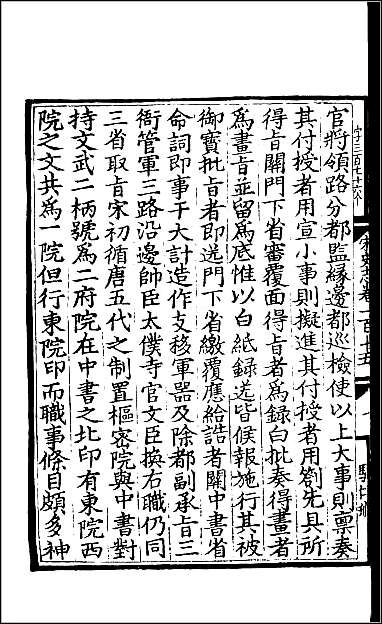 官將領路分都監緣邊都巡檢使以上大事則禀奏
其付授者用宣小事則擬進其付授者用劄先具所
得旨關門下省審覆面得旨者爲録白批奏得畫者
爲畫旨並留爲底惟以白紙録送皆候報施行其被
御寶批旨者即送門下省繳覆應給誥者關中書省
命詞即事干大計造作支移軍器及除都副承旨三
衙管軍三路沿邊帥臣太僕寺官文臣換右職仍同
三省取旨宋初循唐五代之制置樞密院與中書對
持文武二柄號爲二府院在中書之北印有東院西
院之文共爲一院但行東院印而職事條目頗多神